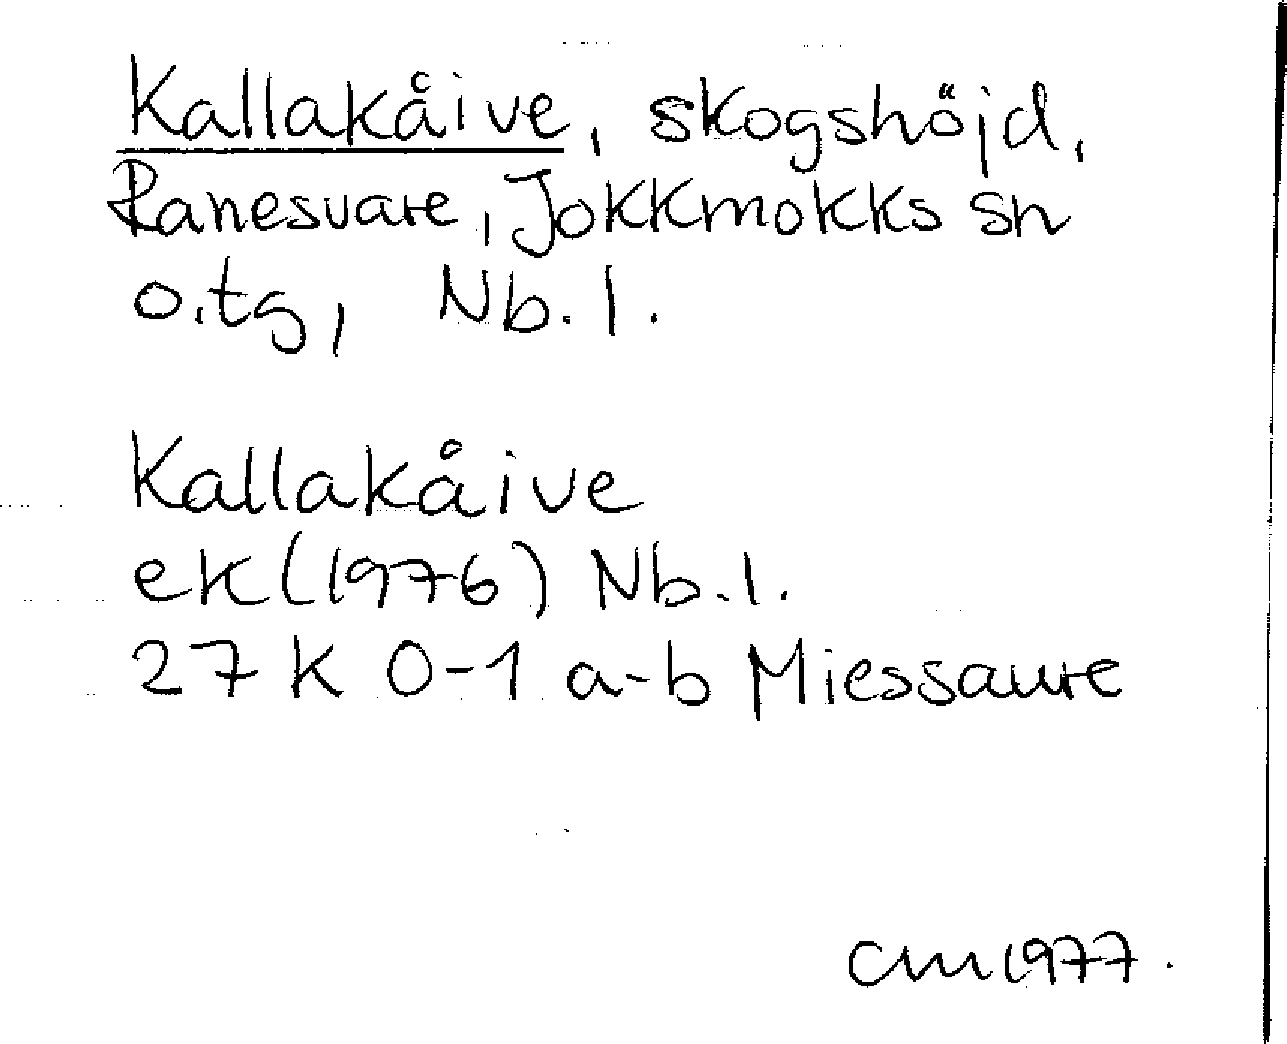 Kallakåive, skogshöjd,
Ranesvare, Jokkmokks sn
o.tg, Nb.l.
Kallakåive
ek (1976) Nb.l.
27 K 0-1 a-b Miessaure
CM 1977.